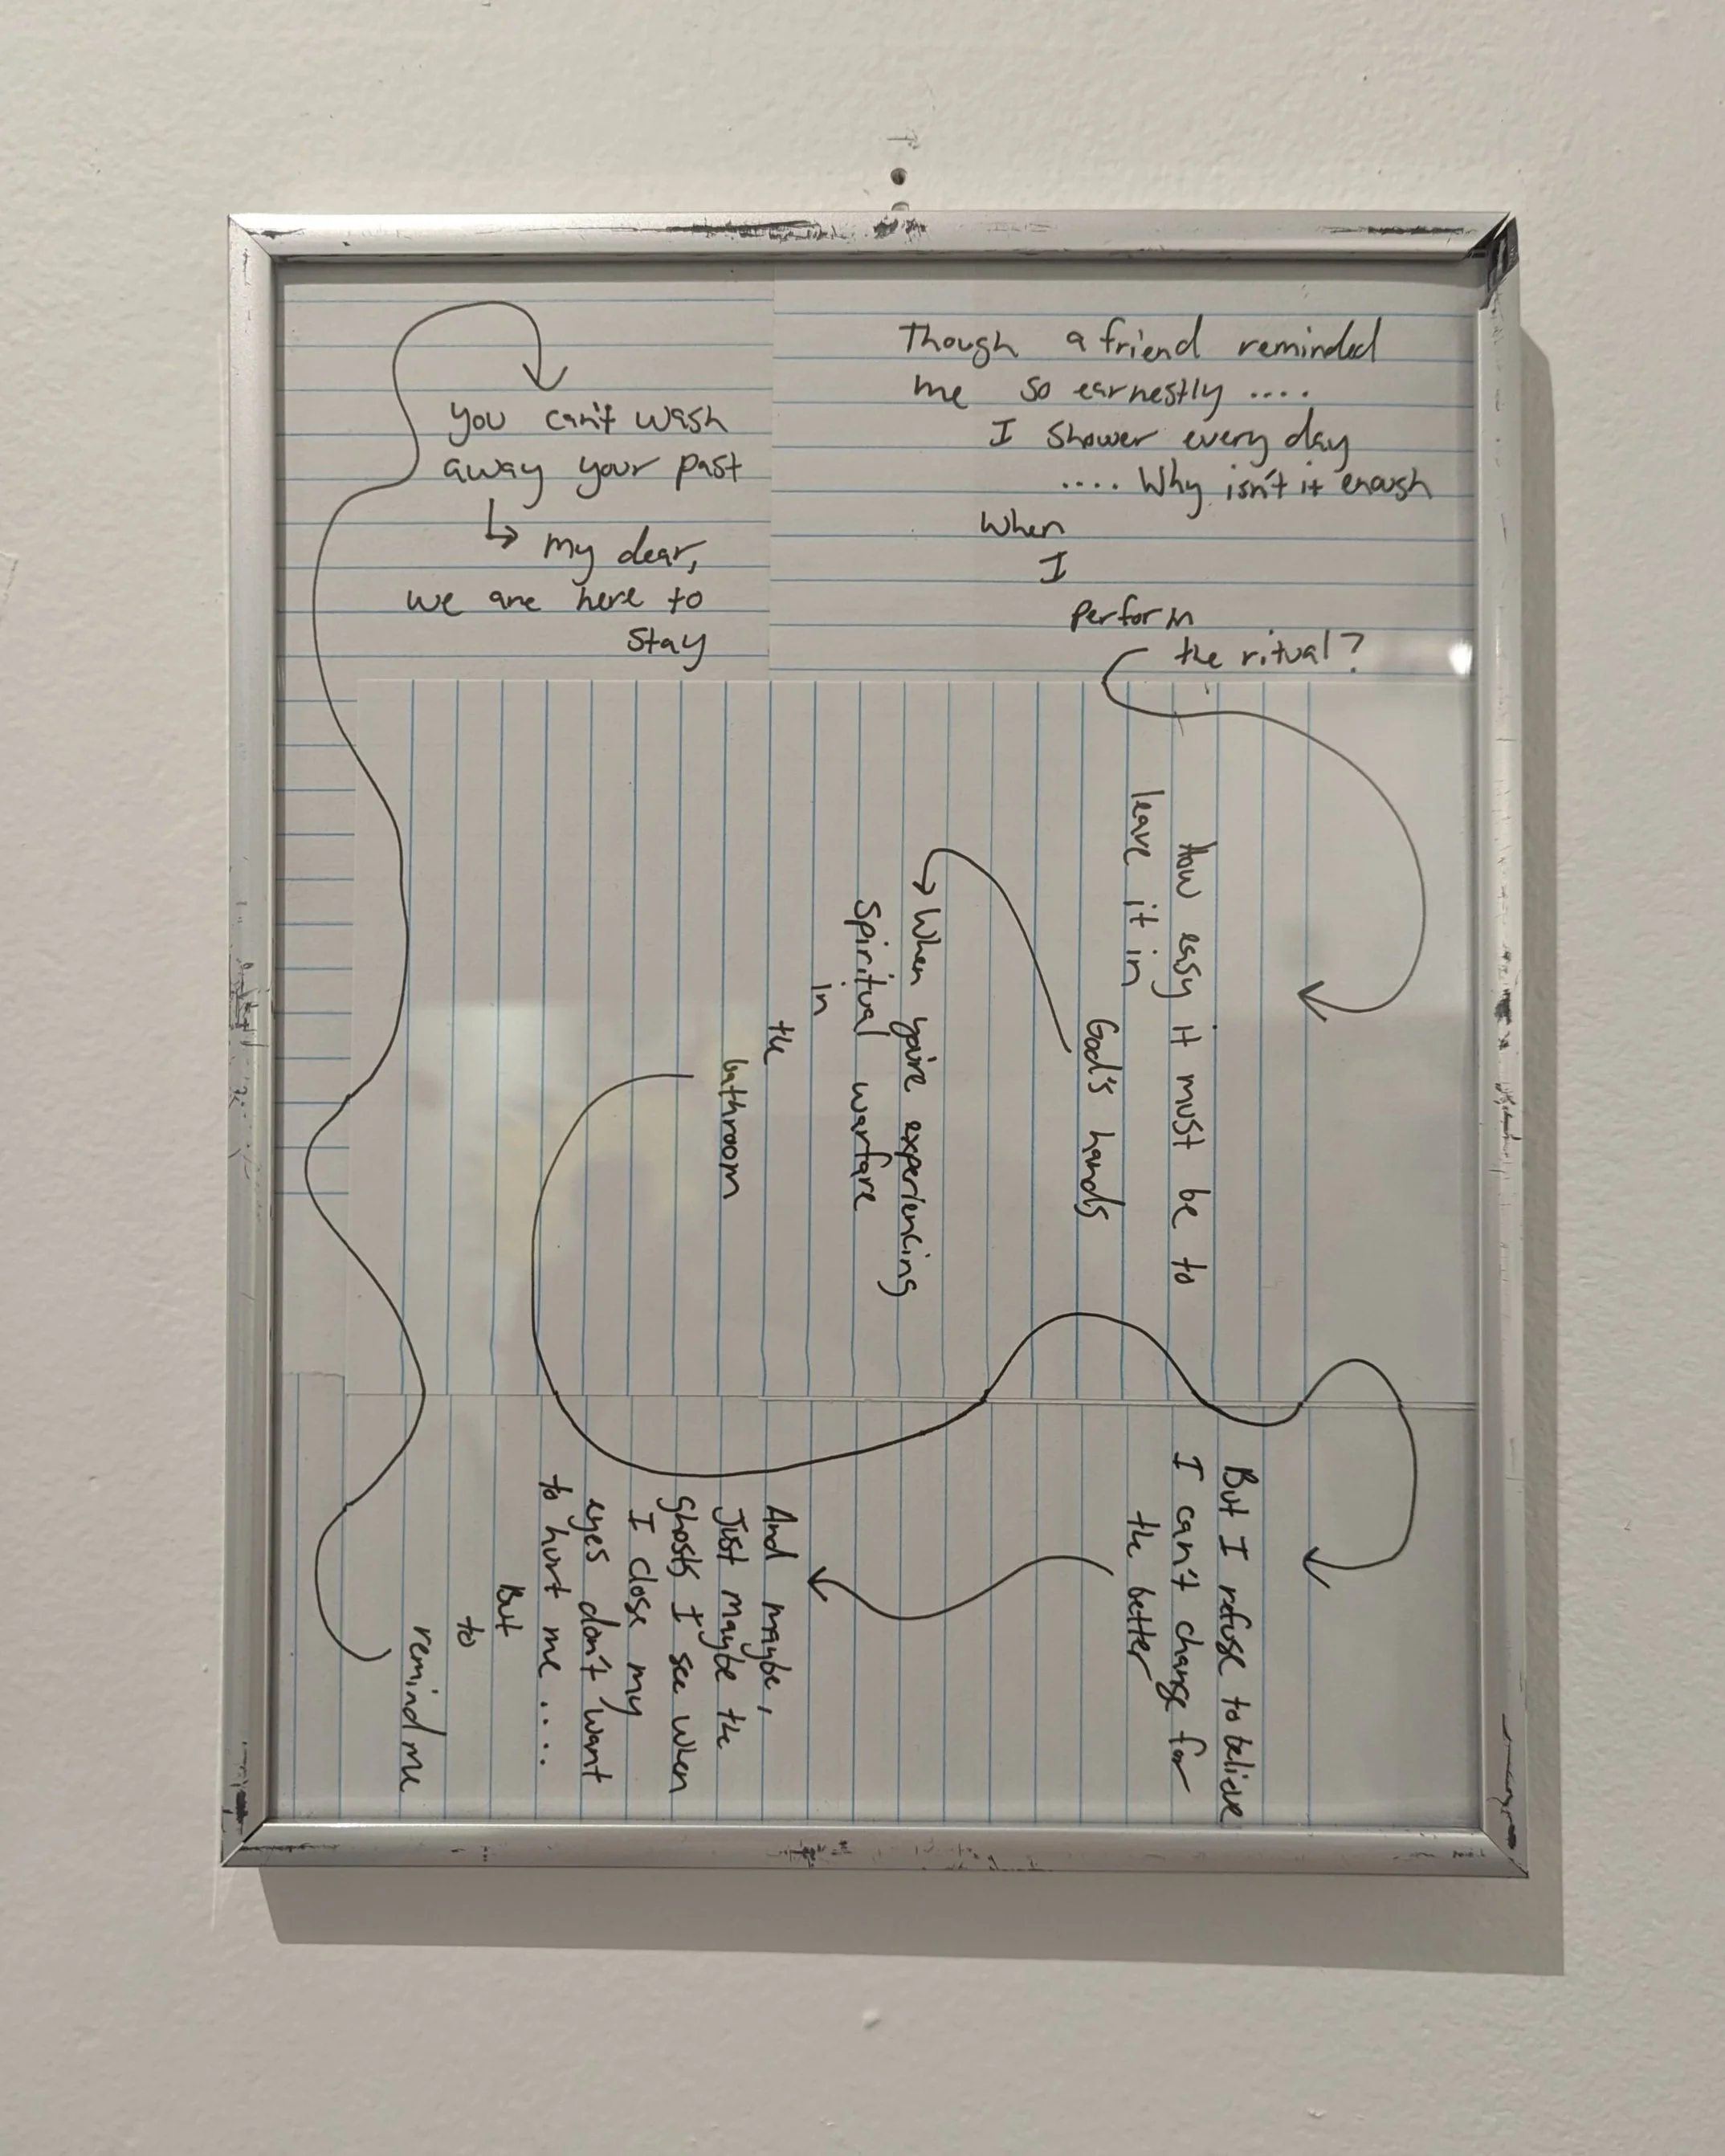 Though a friend reminded
me so earnestly ....
I shower every day
.... Why isn't it enough
When
I
perform
the ritual?
How easy it must be to
leave it in
God's hands
When you're experiencing
spiritual warfare
in
the
bathroom
But I refuse to believe
I can't change for
the better
And maybe,
Just maybe the
ghosts I see when
I close my
eyes don't want
to hurt me ....
But
to
remind me
you can't wash
away your past
my dear,
we are here to
stay